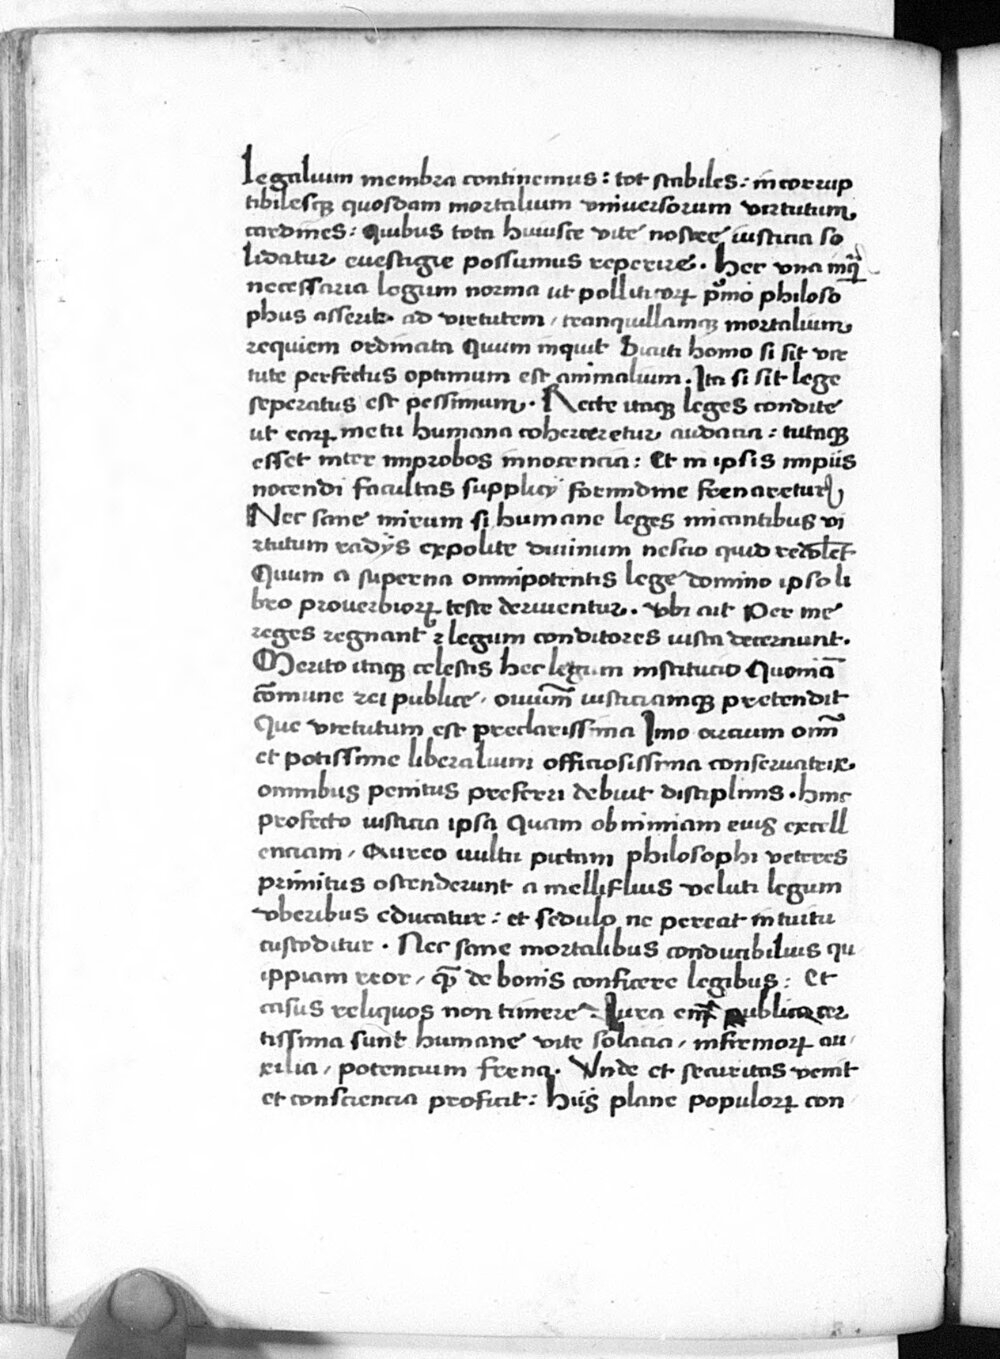 legalium membra continemus : tot stabiles : incorrup
tibilesq; quosdam mortalium vniuersorum virtutum
cardines : Quibus tota huiusce vite nostre iusticia so
lidatur euestigie possumus reperire . Hec vna inq̃
necessaria legum norma ut polliticoꝝ pͦmo philoso
phus asserit . ad virtutem / tranquillamq; mortalium
requiem ordinata Quum inquit Sicuti homo si sit vir
tute perfectus optimum est animalium . Ita si sit lege
seperatus est pessimum . Recte itaq; leges condite
ut eaꝝ metu humana coherceretur audacia : tutaq;
esset inter improbos innocencia : Et in ipsis impiis
nocendi facultas supplicij formidine frenaretur
Nec sane mirum si humane leges micantibus vi
rtutum radijs expolite diuinum nescio quid redolet
Quum a superna omnipotentis lege domino ipso li
bro prouerbioꝝ teste deriuentur . vbi ait Per me
reges regnant ⁊ legum conditores iusta decernunt .
Merito itaq; celestis hec legum institucio Quoniā
cōmune rei publice / ouium̄ iusticiamq; pretendit
Que virtutum est preclarissima Imo arcium omn̄
et potissime liberalium officiosissima conseruatrix
omnibus penitus preferri debuit disciplinis . hinc
profecto iusticia ipsa Quam ob nimiam eius excell
enciam / Aureo uultu pictam philosophi veteres
primitus ostenderunt a mellifluis veluti legum
vberibus educatur : et sedulo ne pereat intuitu
custoditur . Nec sane mortalibus conducibilius qu
ippiam reor / qͣ̃ de bonis conficere legibus : Et
casus reliquos non timere : Iura em̃ publica cer
tissima sunt humane vite solacia / infirmoꝝ au
xilia / potencium frena . Vnde et securitas venit
et consciencia proficit : Huiꝰ plane populoꝝ con